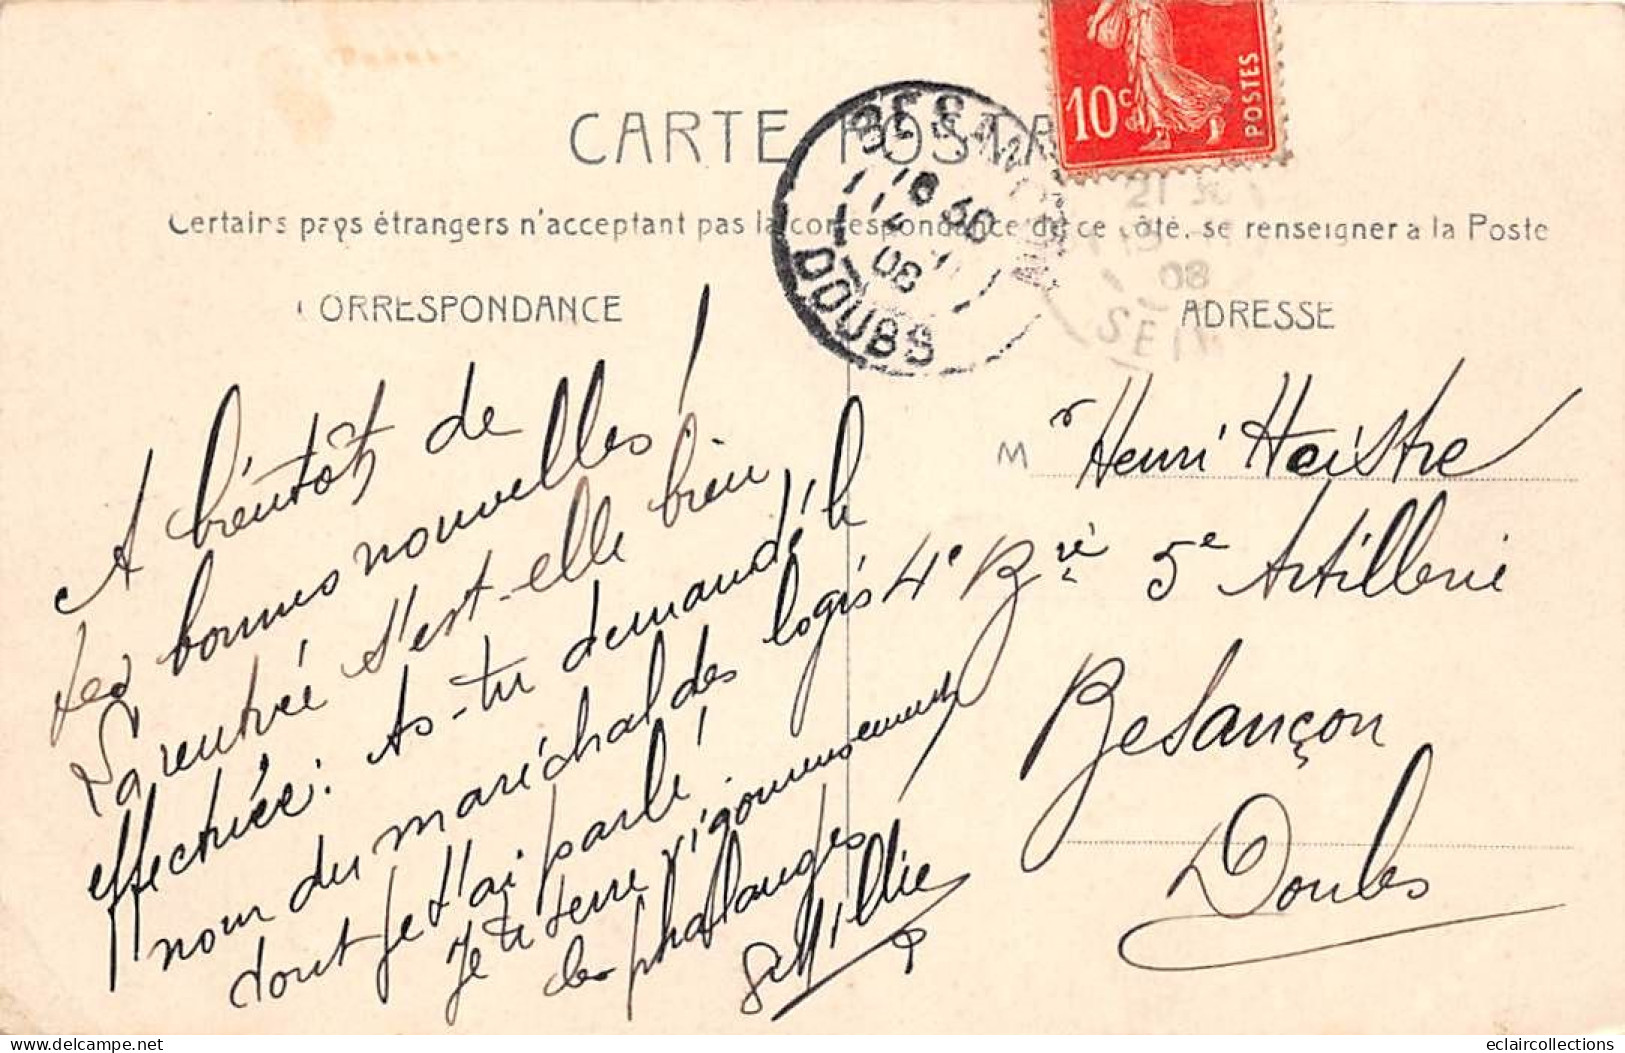 CARTE POSTA
10c
POSTES
BESANÇON
DOUBS
08
21 30
08
SEIN
Certains pays étrangers n'acceptant pas la correspondance de ce côté, se renseigner a la Poste
CORRESPONDANCE
ADRESSE
A bientôt de
tes bonnes nouvelles!
La rentrée s'est-elle bien
effectuée? As-tu demandé le
nom du maréchal des logis
dont je t'ai parlé!
Je te serre vigoureusement
les phalanges
Mr Henri Heistre
4e Brie 5e Artillerie
Besançon
Doubs
delcampe.net
eclaircollections